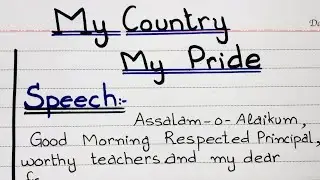 My Country
My Pride
Speech:-
Assalam-o-Alaikum,
Good Morning Respected Principal,
worthy teachers and my dear